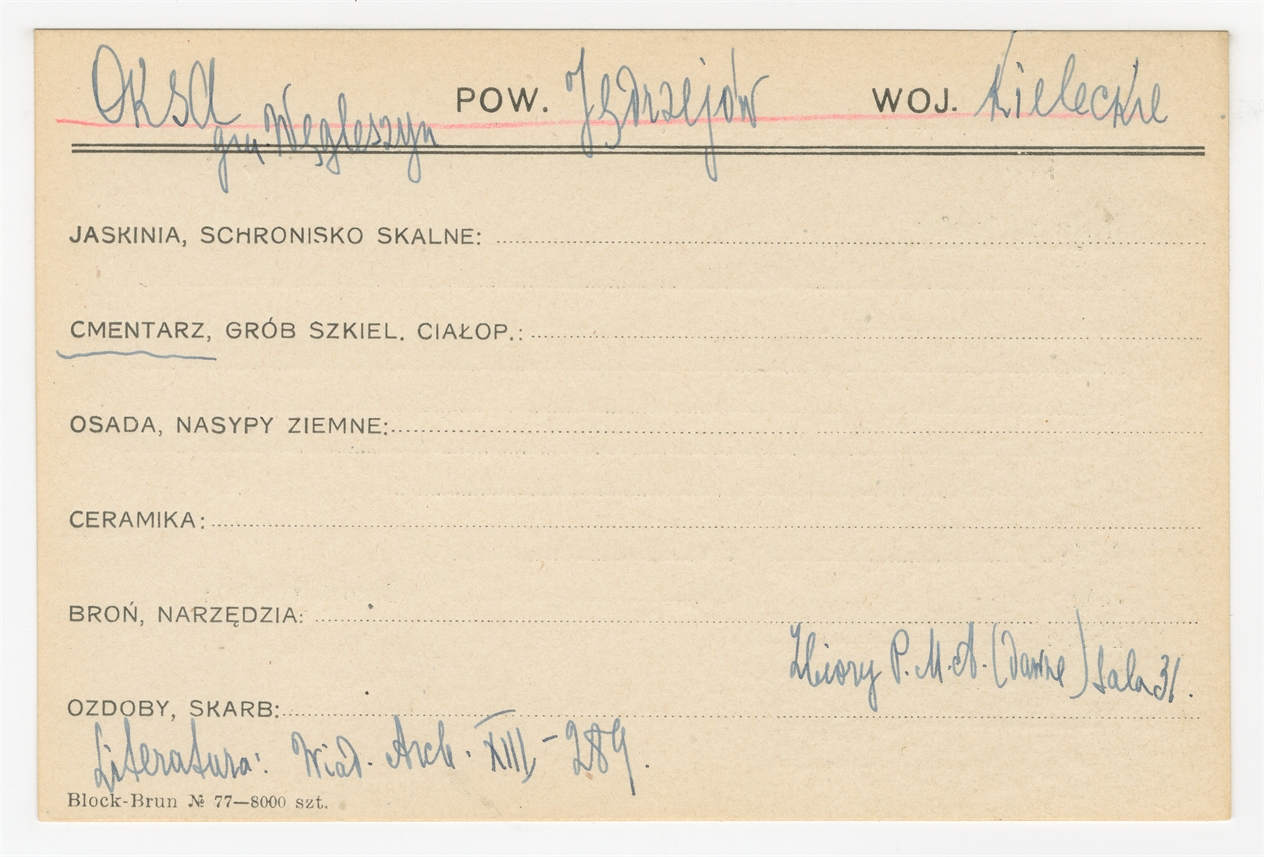 Oksa POW. Jędrzejów WOJ. Kieleckie
gm. Węgleszyn
JASKINIA, SCHRONISKO SKALNE:
CMENTARZ, GRÓB SZKIEL. CIAŁOP.:
OSADA, NASYPY ZIEMNE:
CERAMIKA:
BROŃ, NARZĘDZIA:
Zbiory P.M.A. (dawne) sala 31.
OZDOBY, SKARB:
Literatura: Wiad. Arch. XIII-289.
Block-Brun № 77—8000 szt.